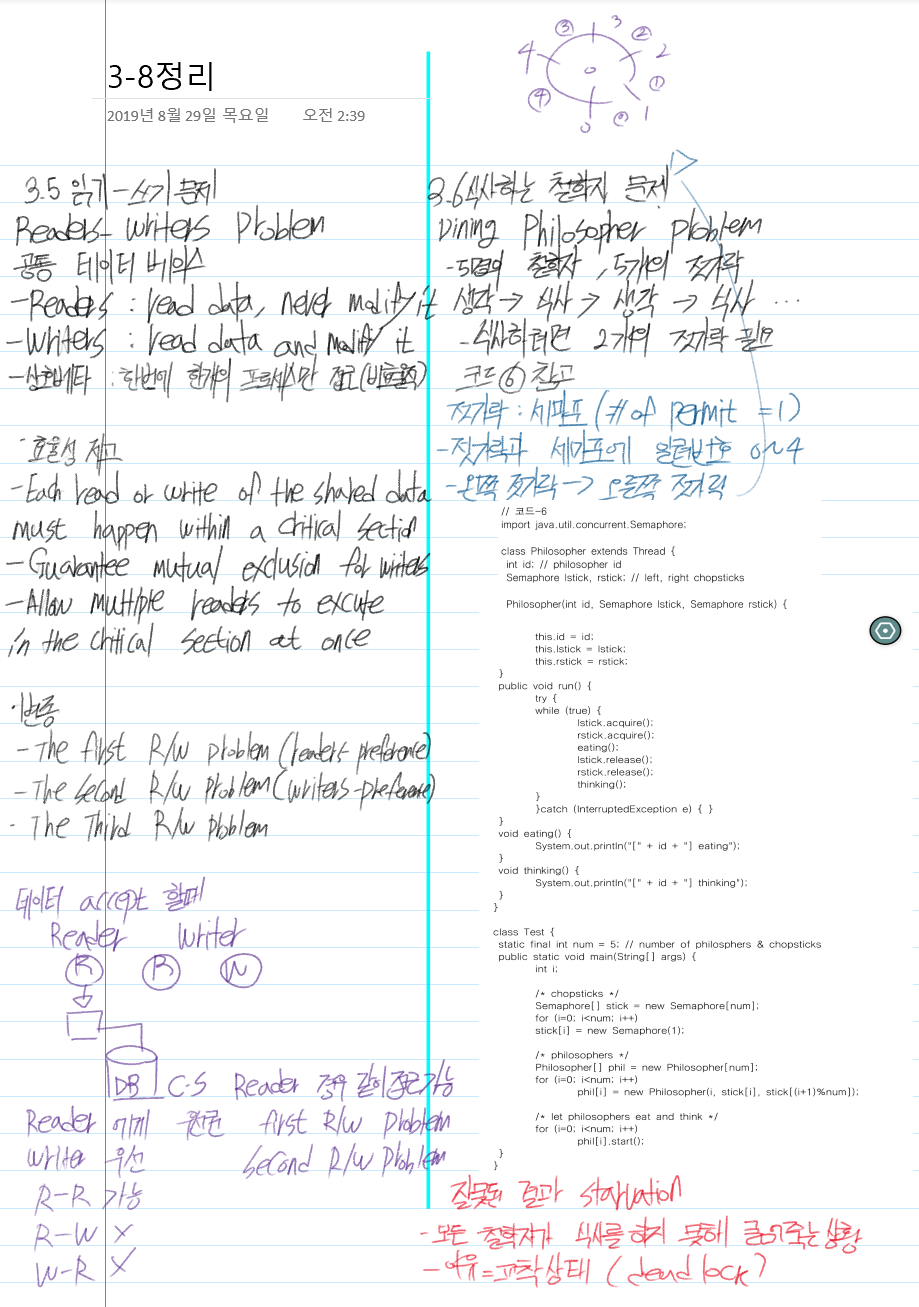 3-8정리
2019년 8월 29일 목요일 오전 2:39
3.5 읽기-쓰기 문제
Readers-Writers Problem
공통 데이터 베이스
-Readers : read data, never modify it
-Writers : read data and modify it
-상호배타 : 한번에 한개의 프로세스만 접근(비효율적)
·효율성 제고
-Each read or write of the shared data
must happen within a critical section
-Guarantee mutual exclusion for writers
-Allow multiple readers to excute
in the critical section at once
·변종
-The first R/W problem (readers-preference)
-The second R/W Problem(writers-preference)
- The Third R/W Problem
데이터 accept 할때
Reader Writer
R R W
DB C-S Reader 경우 같이 접근가능
Reader 에게 first R/W Problem
Write 우선 second R/W Problem
R-R 가능
R-W X
W-R X
3 ③ ② 4 2 ① ④ 1 0 ⓪
3.6식사하는 철학자 문제
Dining Philosopher Problem
-5명의 철학자, 5개의 젓가락
생각→ 식사→ 생각 → 식사 ...
-식사하려면 2개의 젓가락 필요
코드⑥ 참고
젓가락 : 세마포 (# of permit =1)
-젓가락과 세마포에 일련번호 0~4
-왼쪽 젓가락-> 오른쪽 젓가락
// 코드-6
import java.util.concurrent.Semaphore;
class Philosopher extends Thread {
int id; // philosopher id
Semaphore lstick, rstick; // left, right chopsticks
Philosopher(int id, Semaphore lstick, Semaphore rstick) {
this.id = id;
this.lstick = lstick;
this.rstick = rstick;
}
public void run() {
try {
while (true) {
lstick.acquire();
rstick.acquire();
eating();
lstick.release();
rstick.release();
thinking();
}
}catch (InterruptedException e) { }
}
void eating() {
System.out.println("[" + id + "] eating");
}
void thinking() {
System.out.println("[" + id + "] thinking");
}
}
class Test {
static final int num = 5; // number of philosphers & chopsticks
public static void main(String[] args) {
int i;
/* chopsticks */
Semaphore[] stick = new Semaphore[num];
for (i=0; i<num; i++)
stick[i] = new Semaphore(1);
/* philosophers */
Philosopher[] phil = new Philosopher[num];
for (i=0; i<num; i++)
phil[i] = new Philosopher(i, stick[i], stick[(i+1)%num]);
/* let philosophers eat and think */
for (i=0; i<num; i++)
phil[i].start();
}
}
잘못된 결과 starvation
-모든 철학자가 식사를 하지 못해 굶어죽는 상황
-이유=교착상태 (dead lock)